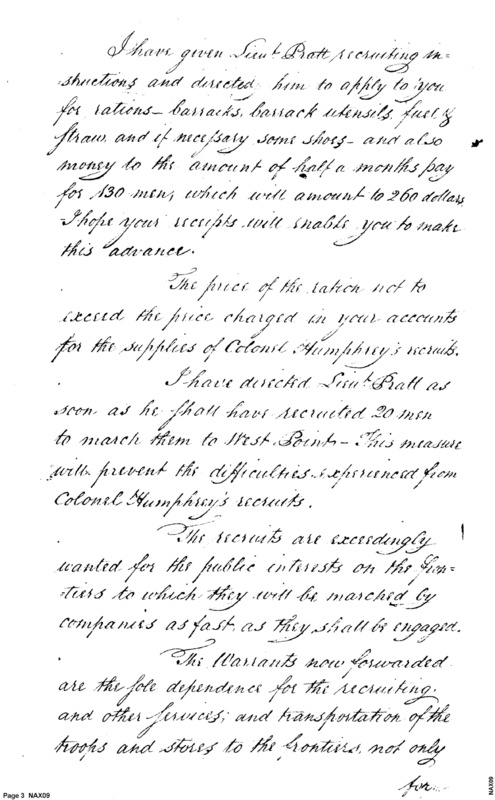 I have given Lieut. Pratt recruiting in=
structions and directed him to apply to you
for rations— barracks, barrack utensils, fuel &
straw, and if necessary some shoes— and also
money to the amount of half a months pay
for 130 men, which will amount to 260 dollars
I hope your receipts will enable you to make
this advance.
The price of the ration not to
exceed the price charged in your accounts
for the supplies of Colonel Humphrey's recruits.
I have directed Lieut. Pratt as
soon as he shall have recruited 20 men
to march them to West Point— This measure
will prevent the difficulties experienced from
Colonel Humphrey's recruits.
The recruits are exceedingly
wanted for the public interests on the fron=
=tiers to which they will be marched by
companies as fast as they shall be engaged.
The Warrants now forwarded
are the sole dependence for the recruiting,
and other services; and transportation of the
troops and stores to the frontiers, not only
for
Page 3 NAX09
NAX09